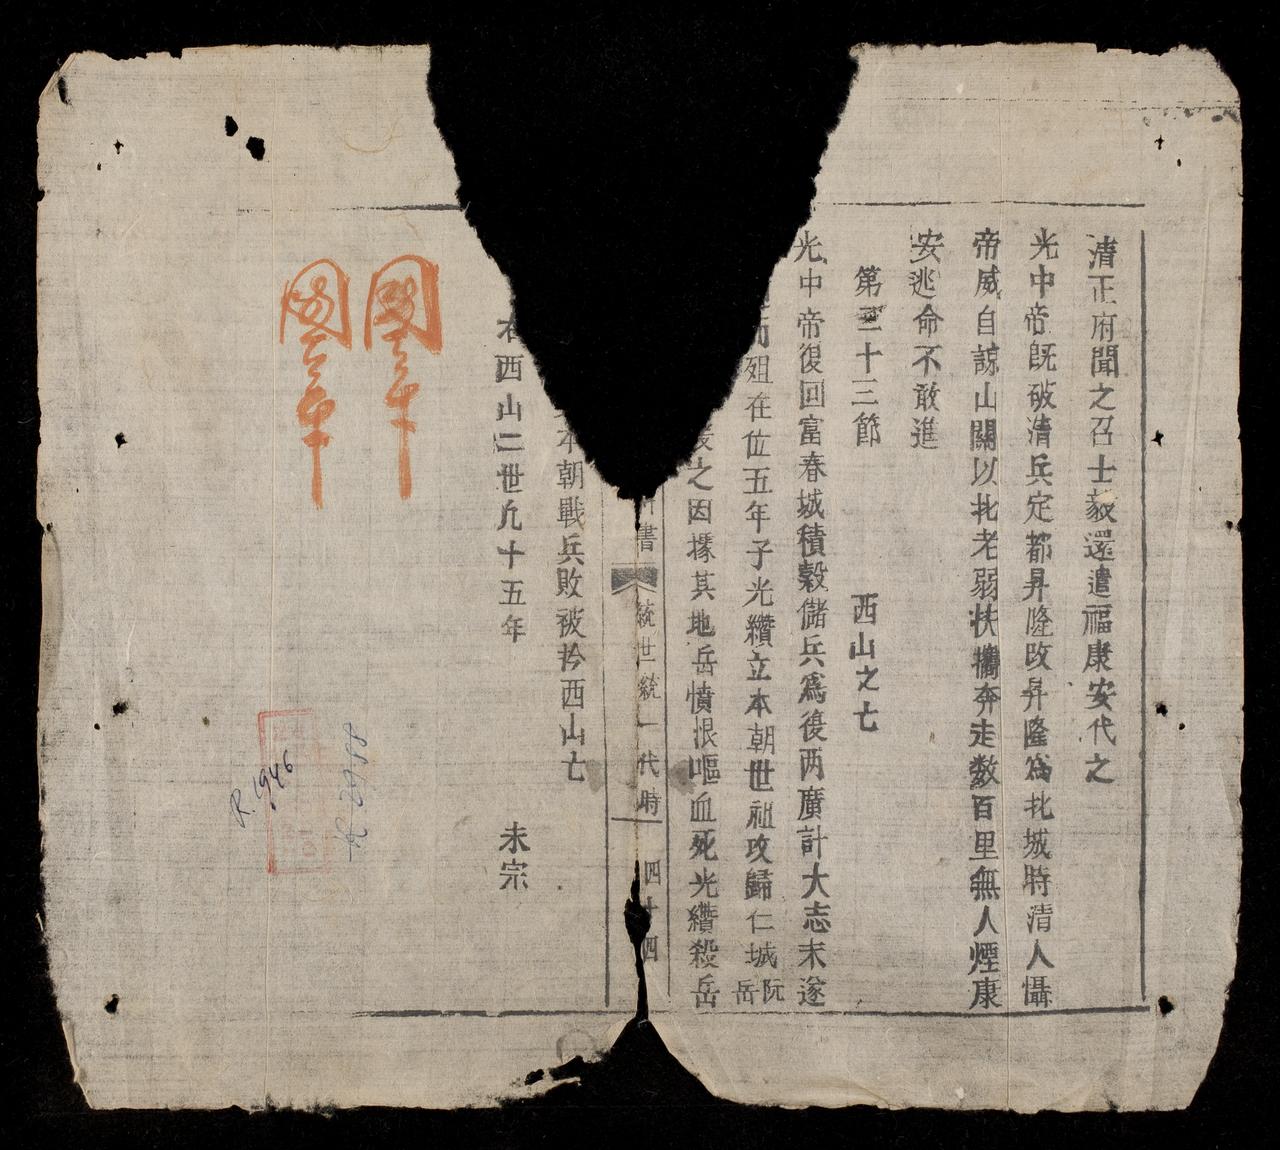 清正府聞之召士毅還遣福康安代之
光中帝旣破清兵定都昇隆改昇隆爲北城時清人懾
帝威自諒山關以北老弱扶攜奔走数百里無人煙康
安逃命不敢進
第三十三節 西山之亡
光中帝復回富春城積穀儲兵爲復两廣計大志未遂
而殂在位五年子光纘立本朝世祖攻歸仁城阮岳
之因據其地岳憤恨嘔血死光纘殺岳
書 統世統一代時 四十四
本朝戰兵敗被拎西山亡
右西山二世凡十五年 末宗
R.1946